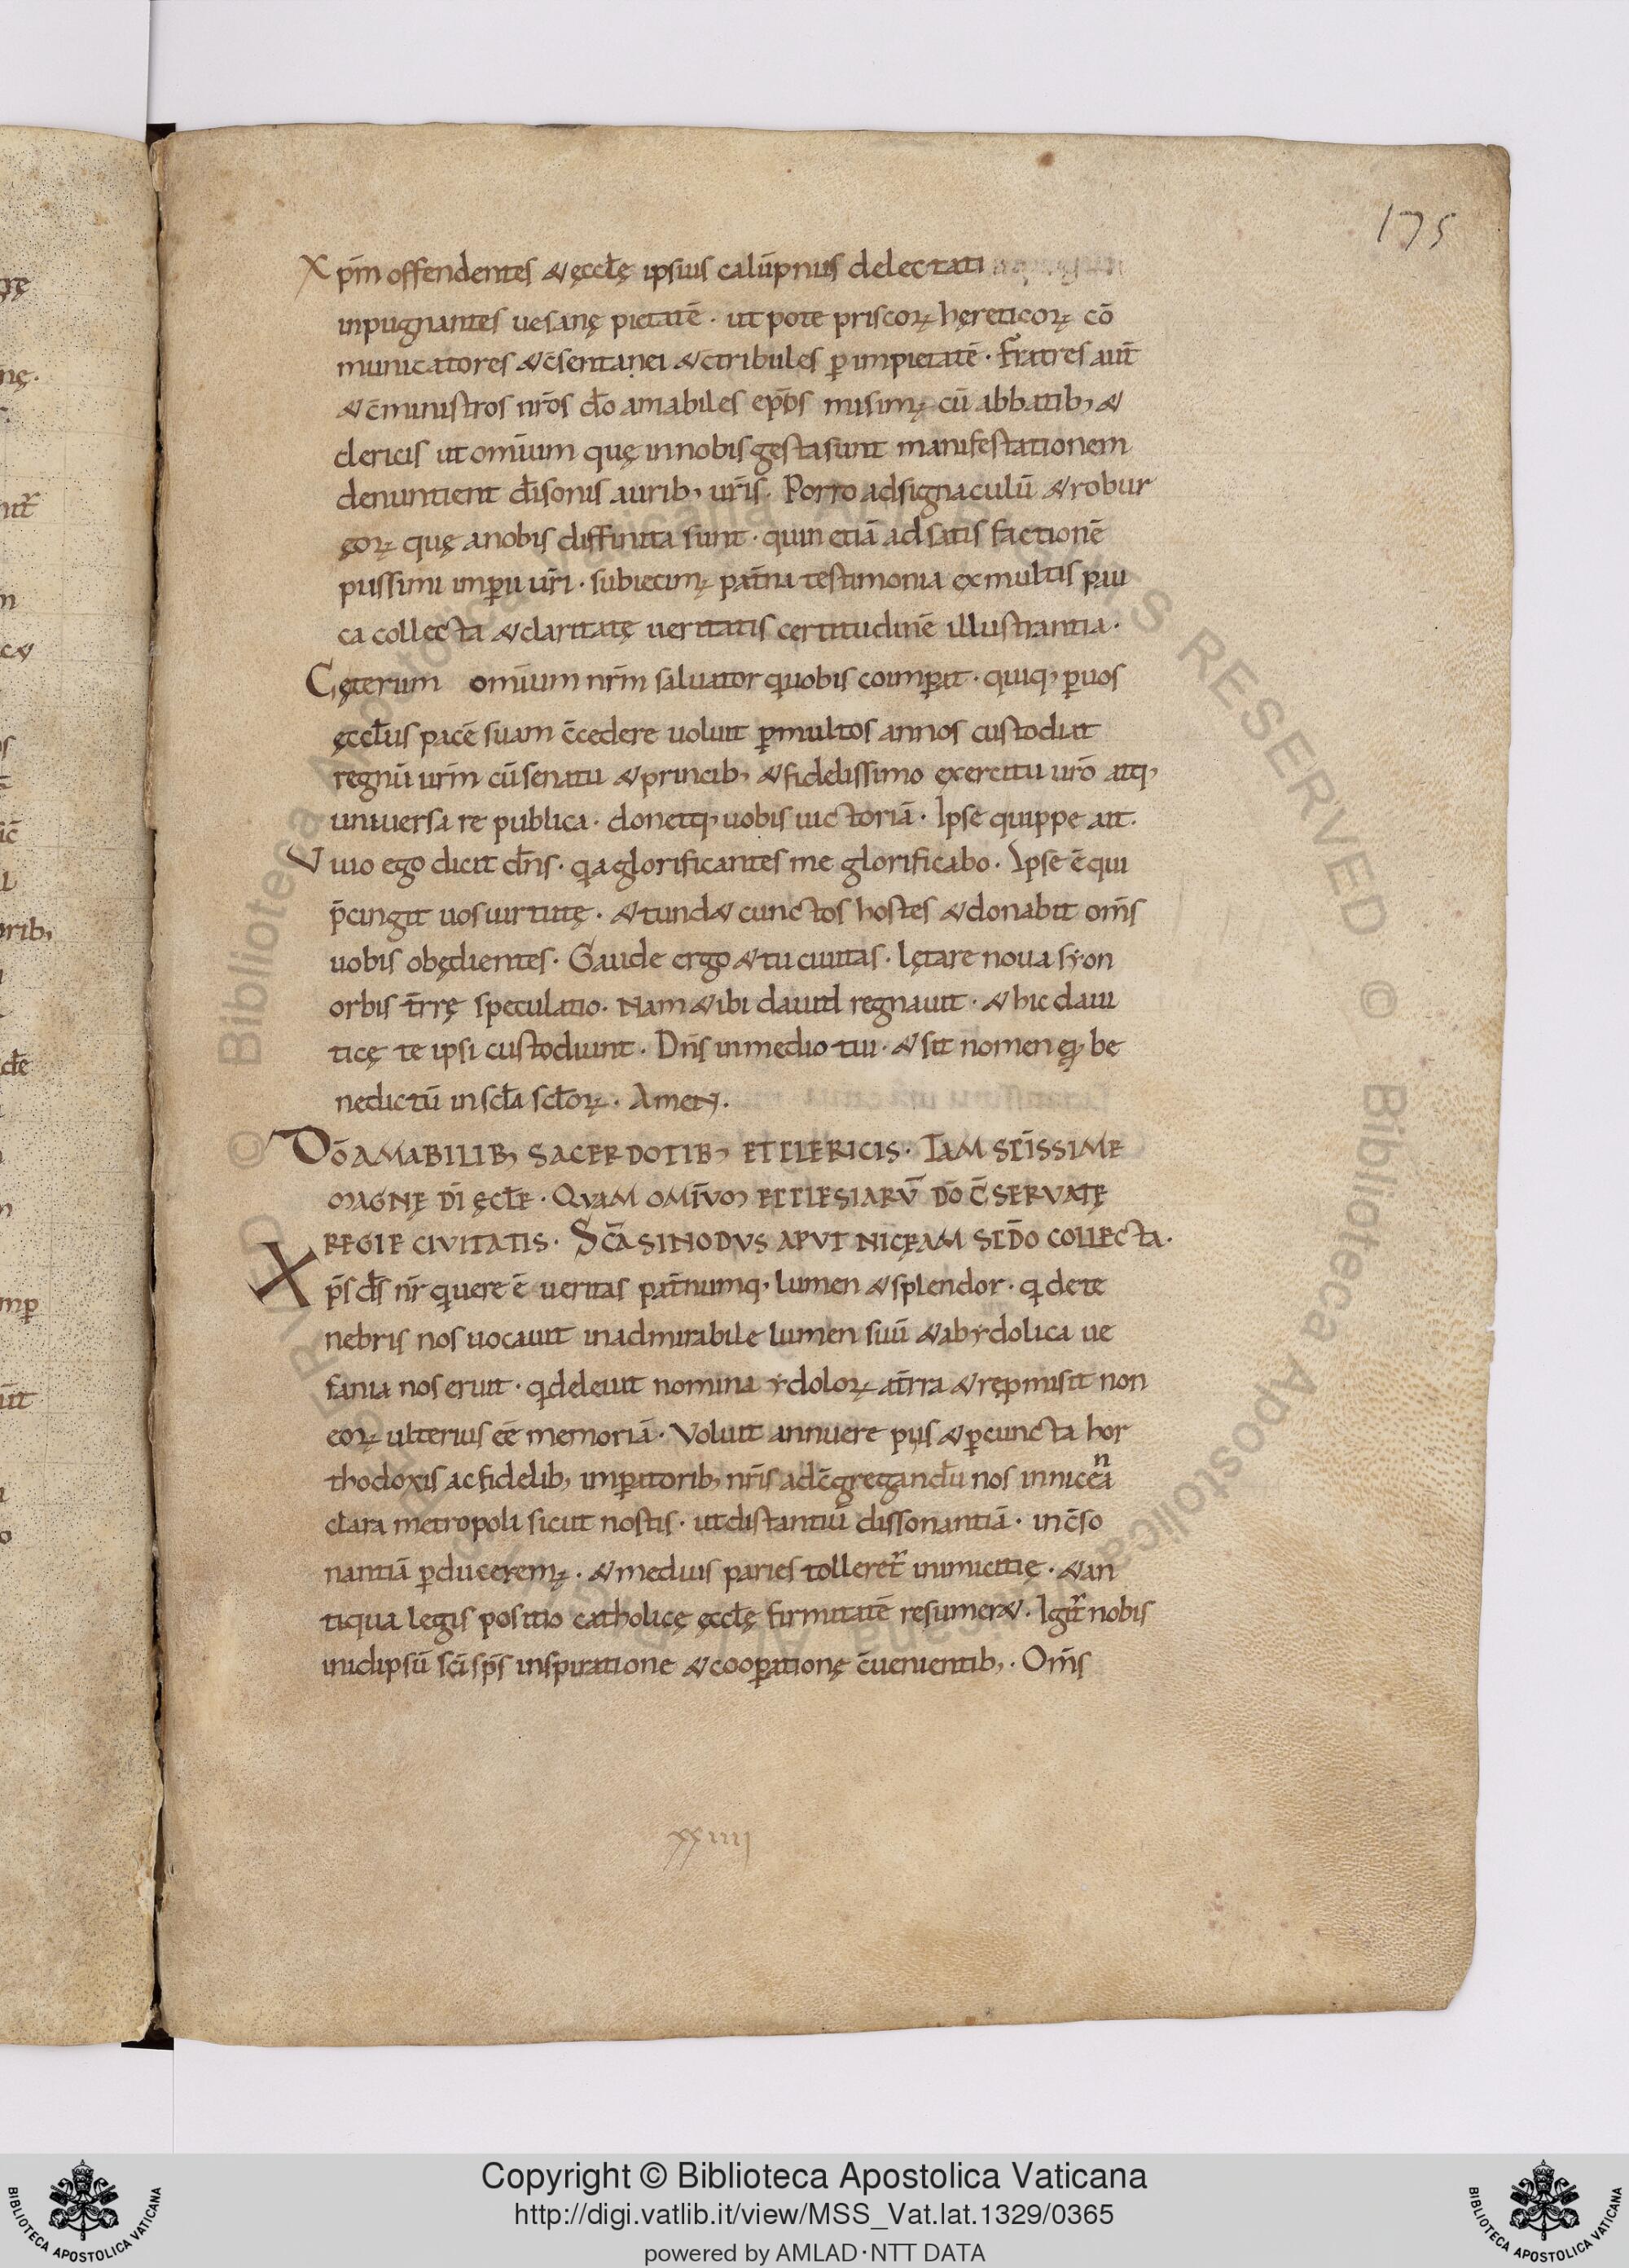 175
Xp̄m offendentes & ęccłę ipsius calūpnus delectati
inpugnantes uesanę pietatē · ut pote priscoꝝ hęreticoꝝ cō
municatores & c̄sentanei & c̄tribules ꝑ impietatē · Fratres aut̄
& c̄ministros nr̄os do amabiles ep̄os misimꝰ cū abbatib; &
clericis ut omīum quę in nobis gesta sunt manifestationem
denuntient dīsonis aurib; ur̄is · Porro ad signaculū & robur
ęoꝝ quę a nobis diffinita sunt · quin etiā ad satis factionē
piissimi imꝑii ur̄i · subiecimꝰ pat̄na testimonia ex multis pau
ca collecta & claritatę ueritatis certitudinē illustrantia ·
Cęterum omīum nr̄m saluator q uobis coimꝑat · quiq; ꝑ uos
ęccłiis pacē suam c̄cedere uoluit ꝑ multos annos custodiat
regnū ur̄m cū senatu & princib; & fidelissimo exercitu ur̄o atq;
uniuersa re publica · donetq; uobis uictoriā · Ipse quippe ait ·
Viuo ego dicit dn̄s · q̄a glorificantes me glorificabo · Ipse ē qui
p̄cingit uos uirtutę · & tund& cunctos hostes & donabit om̄s
uobis obędientes · Gaude ergo & tu ciuitas · lętare noua syon
orbis t̄rrę speculatio · Nam & ibi dauid regnauit · & hic daui
ticę te ipsi custodiunt · Dn̄s in medio tui · & sit nomen eꝰ be
nedictū in scła scłoꝝ · AmeN ·
Dō AMABILIB; SACERDOTIB; ET CLERICIS · TAM SCĪSSIME
MAGNĘ DĪ ĘCŁE · QVAM OMĪVM ECCLESIARV̄ DŌ C̄SERVATĘ
REGIE CIVITATIS · SC̄A SINODVS APVT NICĘAM SCD̄O COLLECTA ·
Xp̄s ds̄ nr̄ q uere ē ueritas pat̄numq; lumen & splendor · q de te
nebris nos uocauit in admirabile lumen suū & ab ydolica ue
sania nos eruit · q deleuit nomina ydoloꝝ a t̄rra & reꝓmisit non
eoꝝ ulterius eē memoriā · Voluit annuere piis & ꝑ cuncta hor
thodoxis ac fidelib; imꝑatorib; nr̄is ad c̄gregandū nos in nicena
clara metropoli sicut nostis · ut distantiū dissonantiā · in c̄so
nantiā ꝑduceremꝰ · & medius paries tolleret̄ inimicitię · & an
tiqua legis positio catholicę ęccłę firmitatē resumer& · Igit̄ nobis
in idipsū sc̄i sp̄s inspiratione & cooꝑationę c̄uenientib; · Om̄s
xxiiii
Copyright © Biblioteca Apostolica Vaticana
http://digi.vatlib.it/view/MSS_Vat.lat.1329/0365
powered by AMLAD·NTT DATA
BIBLIOTECA APOSTOLICA VATICANA
BIBLIOTECA APOSTOLICA VATICANA